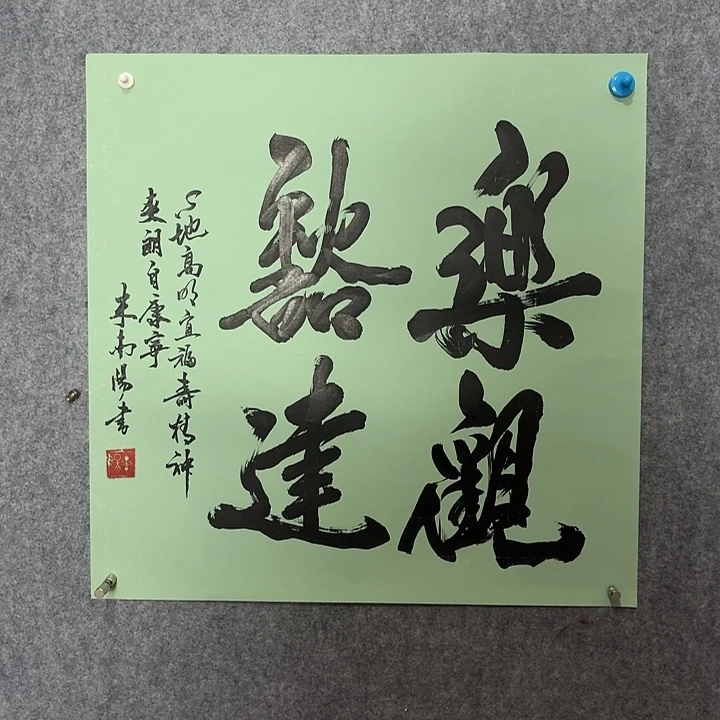 樂觀
豁達
心地高明宜福壽精神
爽朗自康寧
米南陽書